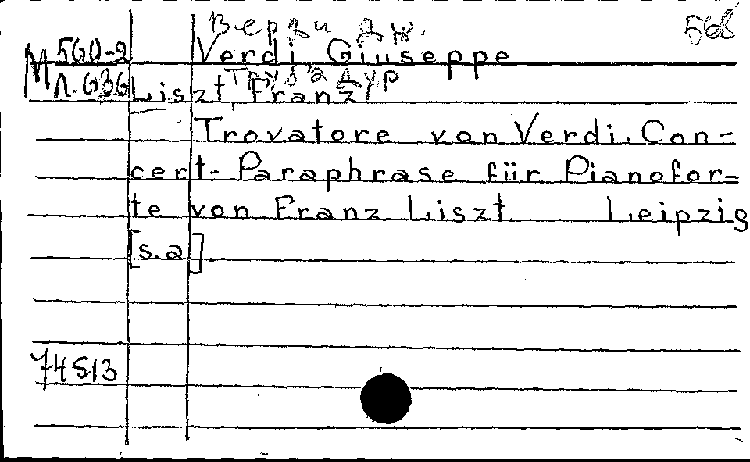 Верди Дж. 568
M 560-2 Verdi, Giuseppe
Л.636 Liszt, Franz
Trovatore von Verdi. Con-
cert-Paraphrase für Pianofor=
te von Franz Liszt Leipzig
[s.a]
74513